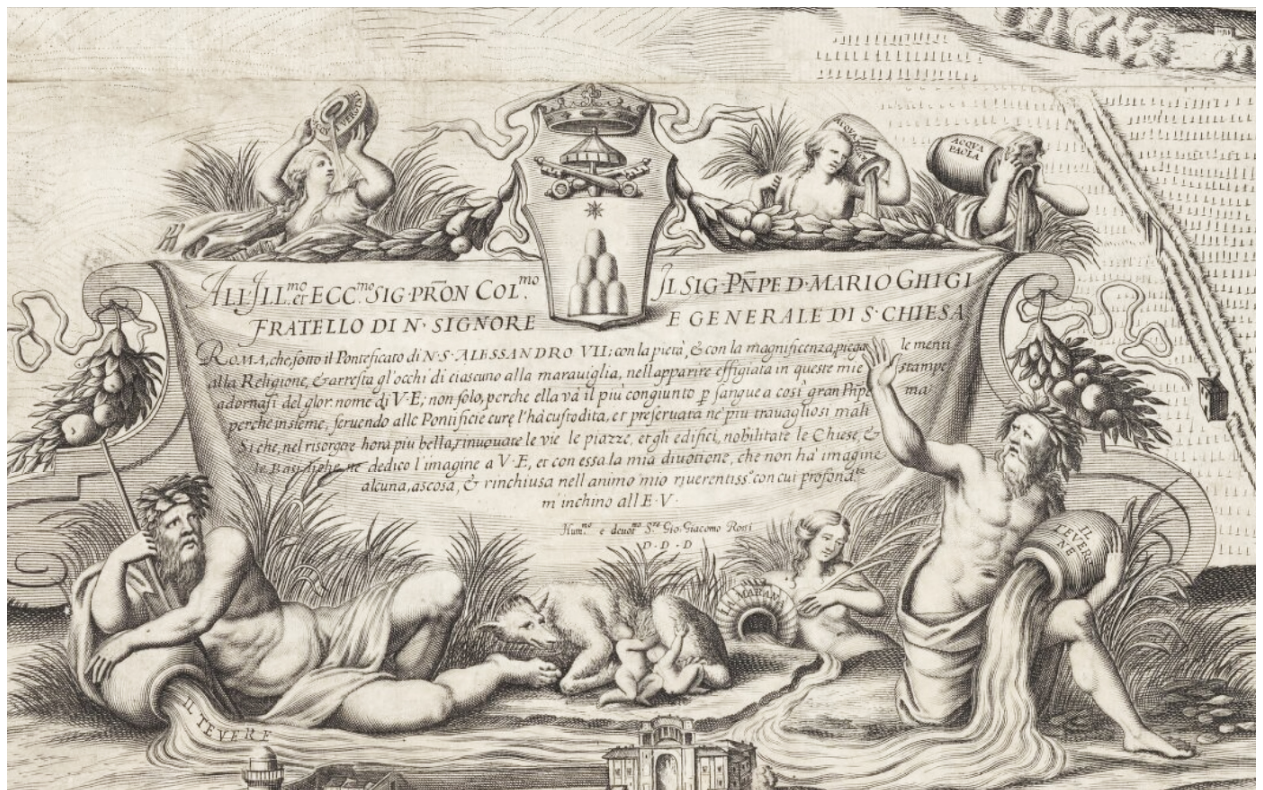 ACQVA VERGINE
ACQVA
ACQVA PAOLA
ALL' ILL.mo et ECC.mo SIG. PRÕN COL.mo IL SIG. PÑPE D. MARIO GHIGI
FRATELLO DI N. SIGNORE E GENERALE DI S. CHIESA
ROMA, che, sotto il Ponteficato di N. S. ALESSANDRO VII: con la pietà, & con la magnificenza, piega le menti
alla Religione, & arresta gl'occhi di ciascuno alla marauiglia, nell'apparire effigiata in queste mie stampe
adornasi del glor. nome di V. E; non solo, perche ella và il più congiunto p sangue a così gran Pñpe ma
perche insieme, seruendo alle Pontificie cure l'hà custodita, et preseruata ne' piu trauagliosi mali
Si che, nel risorgere hora piu bella, rinuouate le vie le piazze, et gli edifici, nobilitate le Chiese, &
le Basiliche, ne dedico l'imagine a V. E, et con essa la mia diuotione, che non hà imagine
alcuna, ascosa, & rinchiusa nell animo mio riuerentiss.o con cui profond.te
m'inchino all E. V.
Hum.mo e deuot.mo S.re Gio. Giacomo Rossi
D. D. D
LA MARANA
IL TEVERE
IL TEVERONE